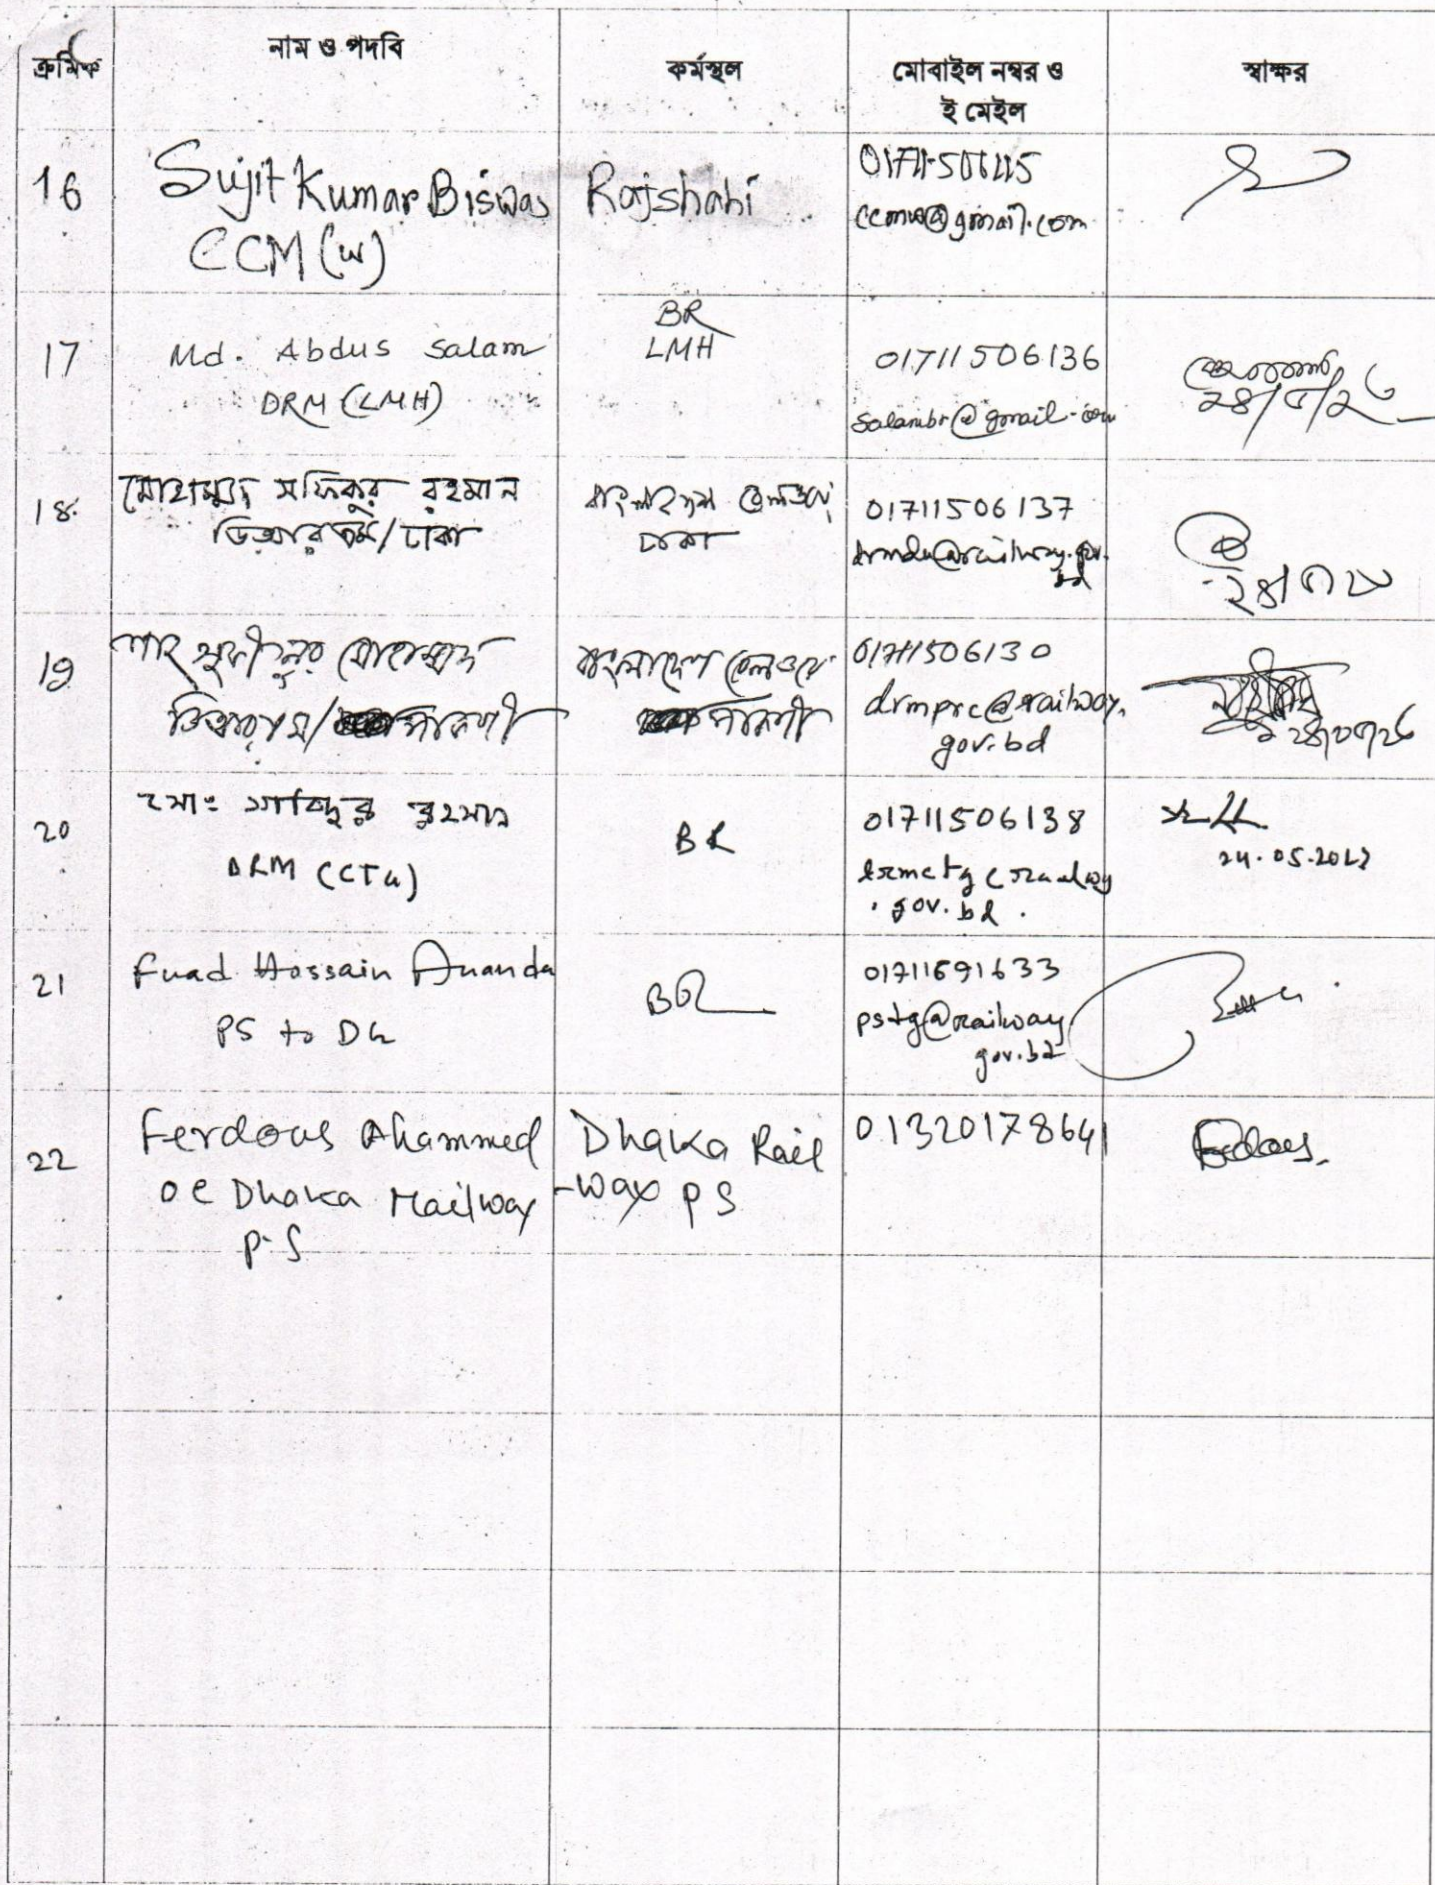 ক্রমিক
নাম ও পদবি
কর্মস্থল
মোবাইল নম্বর ও
ই মেইল
স্বাক্ষর
16
Sujit Kumar Biswas
CCM (W)
Rajshahi
ccmw@gmail.com
17
Md. Abdus Salam
DRM (LMH)
BR
LMH
01711506136
salambr@gmail.com
২৪/৫/২৬
18.
মোহাম্মদ সফিকুর রহমান
ডিআরএম/ঢাকা
রেলওয়ে
ঢাকা
01711506137
19
শাহ সুফী নুর মোহাম্মদ
ডিআরএম/পাকশী
বাংলাদেশ রেলওয়ে
পাকশী
01711506130
drmprc@railway.
gov.bd
20
মোঃ রহমান
DRM (CTG)
BR
01711506138
gov.bd.
21
Fuad Hossain Ananda
PS to DG
BR
01711691633
pstg@railway
gov.bd
22
Ferdous Ahammed
OC Dhaka Railway
P.S
Dhaka Rail
-way PS
01320178641